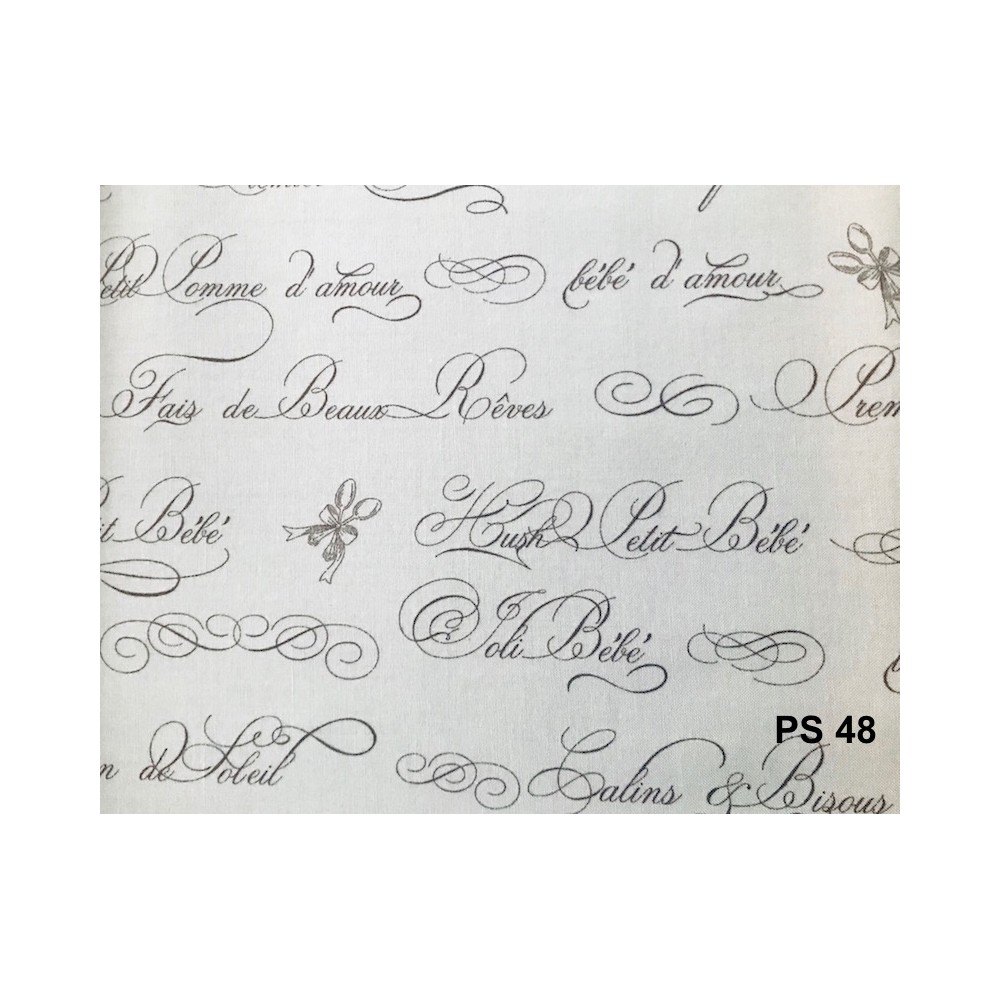 Petit Pomme d'amour bébé d'amour
Fais de Beaux Rêves
Bébé Hush Petit Bébé
Joli Bébé
PS 48
de Soleil Calins & Bisous